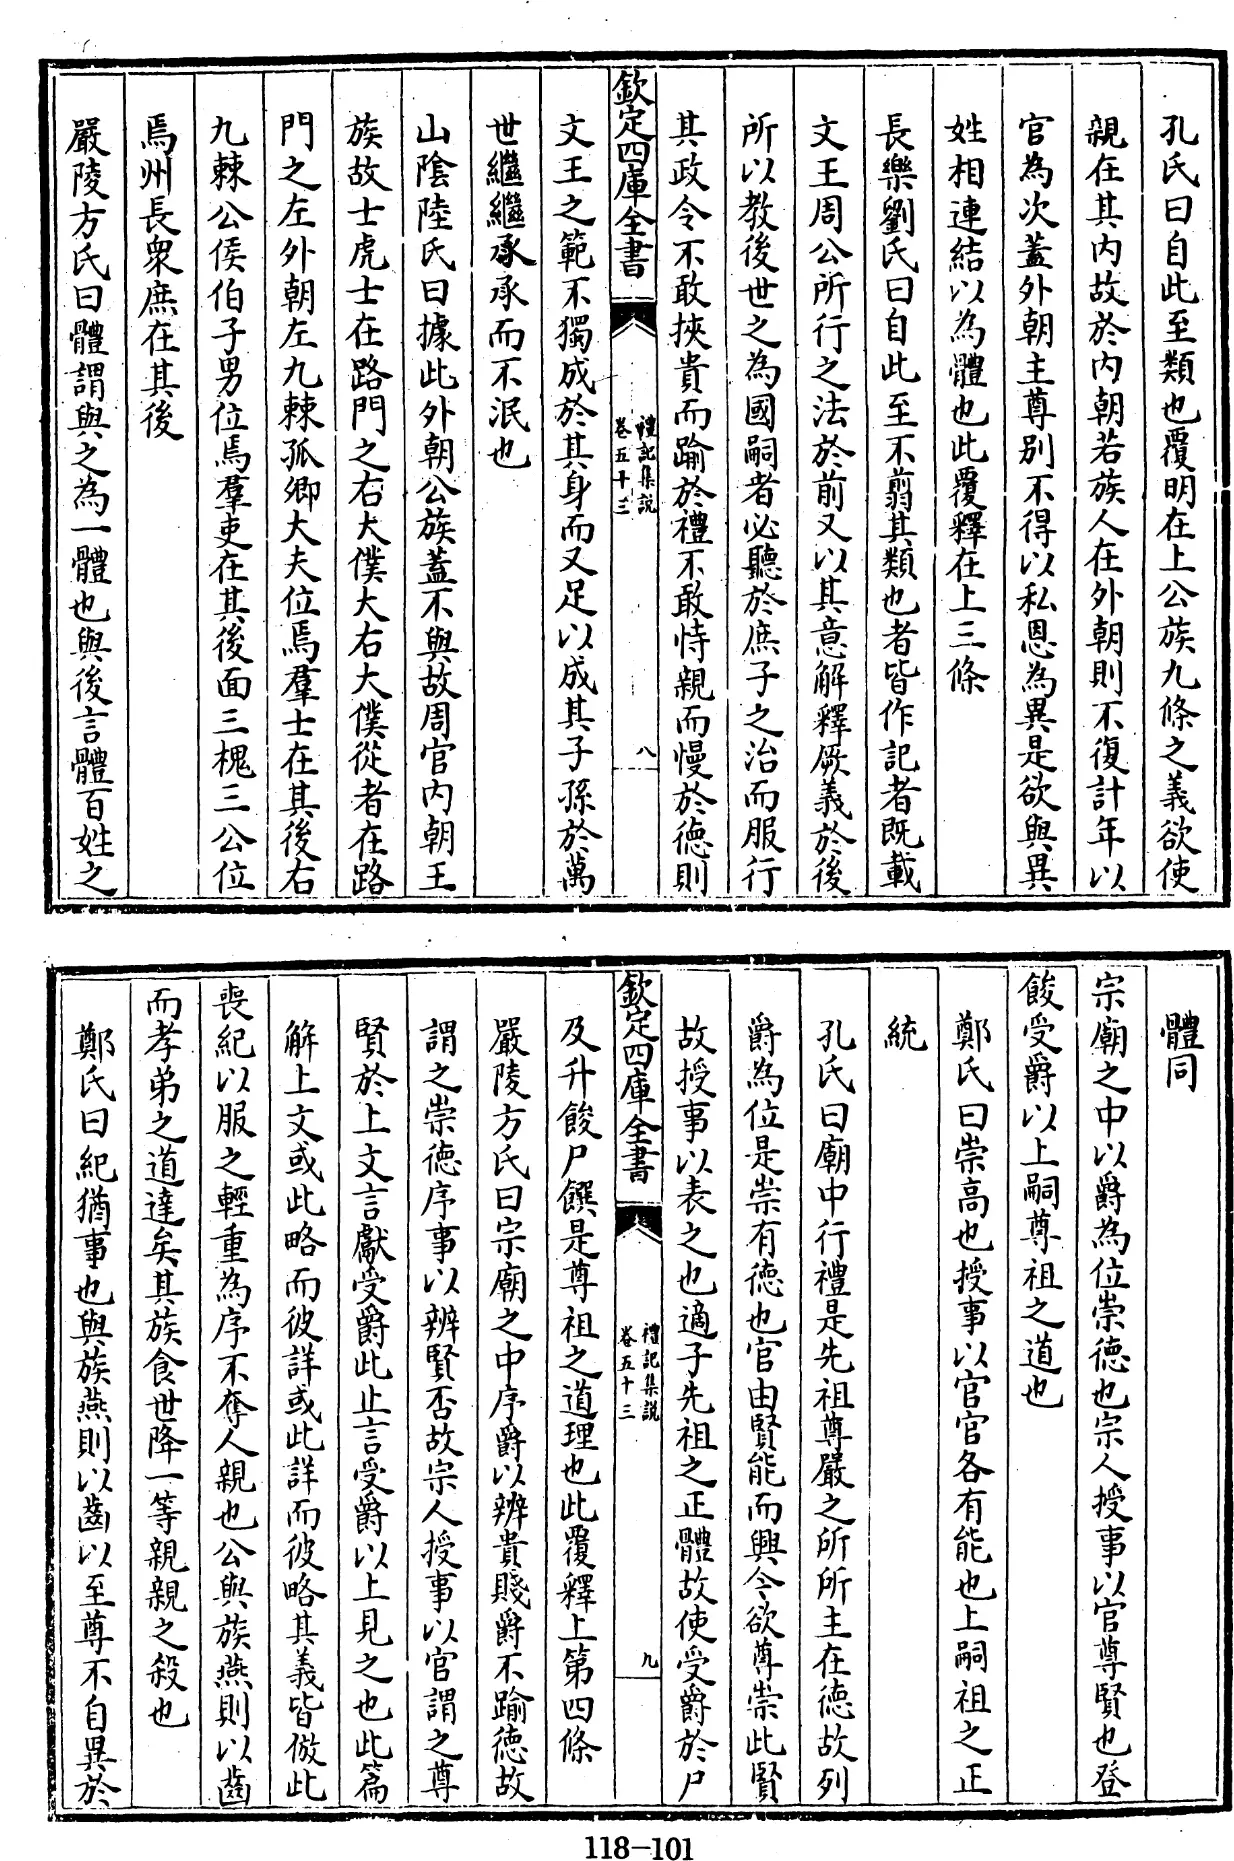 孔氏曰自此至類也覆明在上公族九條之義欲使
親在其内故於内朝若族人在外朝則不復計年以
官為次蓋外朝主尊别不得以私恩為異是欲與異
姓相連結以為體也此覆釋在上三條
長樂劉氏曰自此至不翦其類也者皆作記者既載
文王周公所行之法於前又以其意解釋厥義於後
所以教後世之為國嗣者必聽於庶子之治而服行
其政令不敢挾貴而踰於禮不敢恃親而慢於德則
欽定四庫全書
禮記集説
卷五十三
八
文王之範不獨成於其身而又足以成其子孫於萬
世繼繼承承而不泯也
山陰陸氏曰據此外朝公族蓋不與故周官内朝王
族故士虎士在路門之右大僕大右大僕從者在路
門之左外朝左九棘孤卿大夫位焉羣士在其後右
九棘公侯伯子男位焉羣吏在其後面三槐三公位
焉州長衆庶在其後
嚴陵方氏曰體謂與之為一體也與後言體百姓之
體同
宗廟之中以爵為位崇德也宗人授事以官尊賢也登
餕受爵以上嗣尊祖之道也
鄭氏曰崇高也授事以官官各有能也上嗣祖之正
統
孔氏曰廟中行禮是先祖尊嚴之所所主在德故列
爵為位是崇有德也官由賢能而興今欲尊崇此賢
故授事以表之也適子先祖之正體故使受爵於尸
欽定四庫全書
禮記集説
卷五十三
九
及升餕尸饌是尊祖之道理也此覆釋上第四條
嚴陵方氏曰宗廟之中序爵以辨貴賤爵不踰德故
謂之崇德序事以辨賢否故宗人授事以官謂之尊
賢於上文言獻受爵此止言受爵以上見之也此篇
解上文或此略而彼詳或此詳而彼略其義皆倣此
喪紀以服之輕重為序不奪人親也公與族燕則以齒
而孝弟之道達矣其族食世降一等親親之殺也
鄭氏曰紀猶事也與族燕則以齒以至尊不自異於
118-101